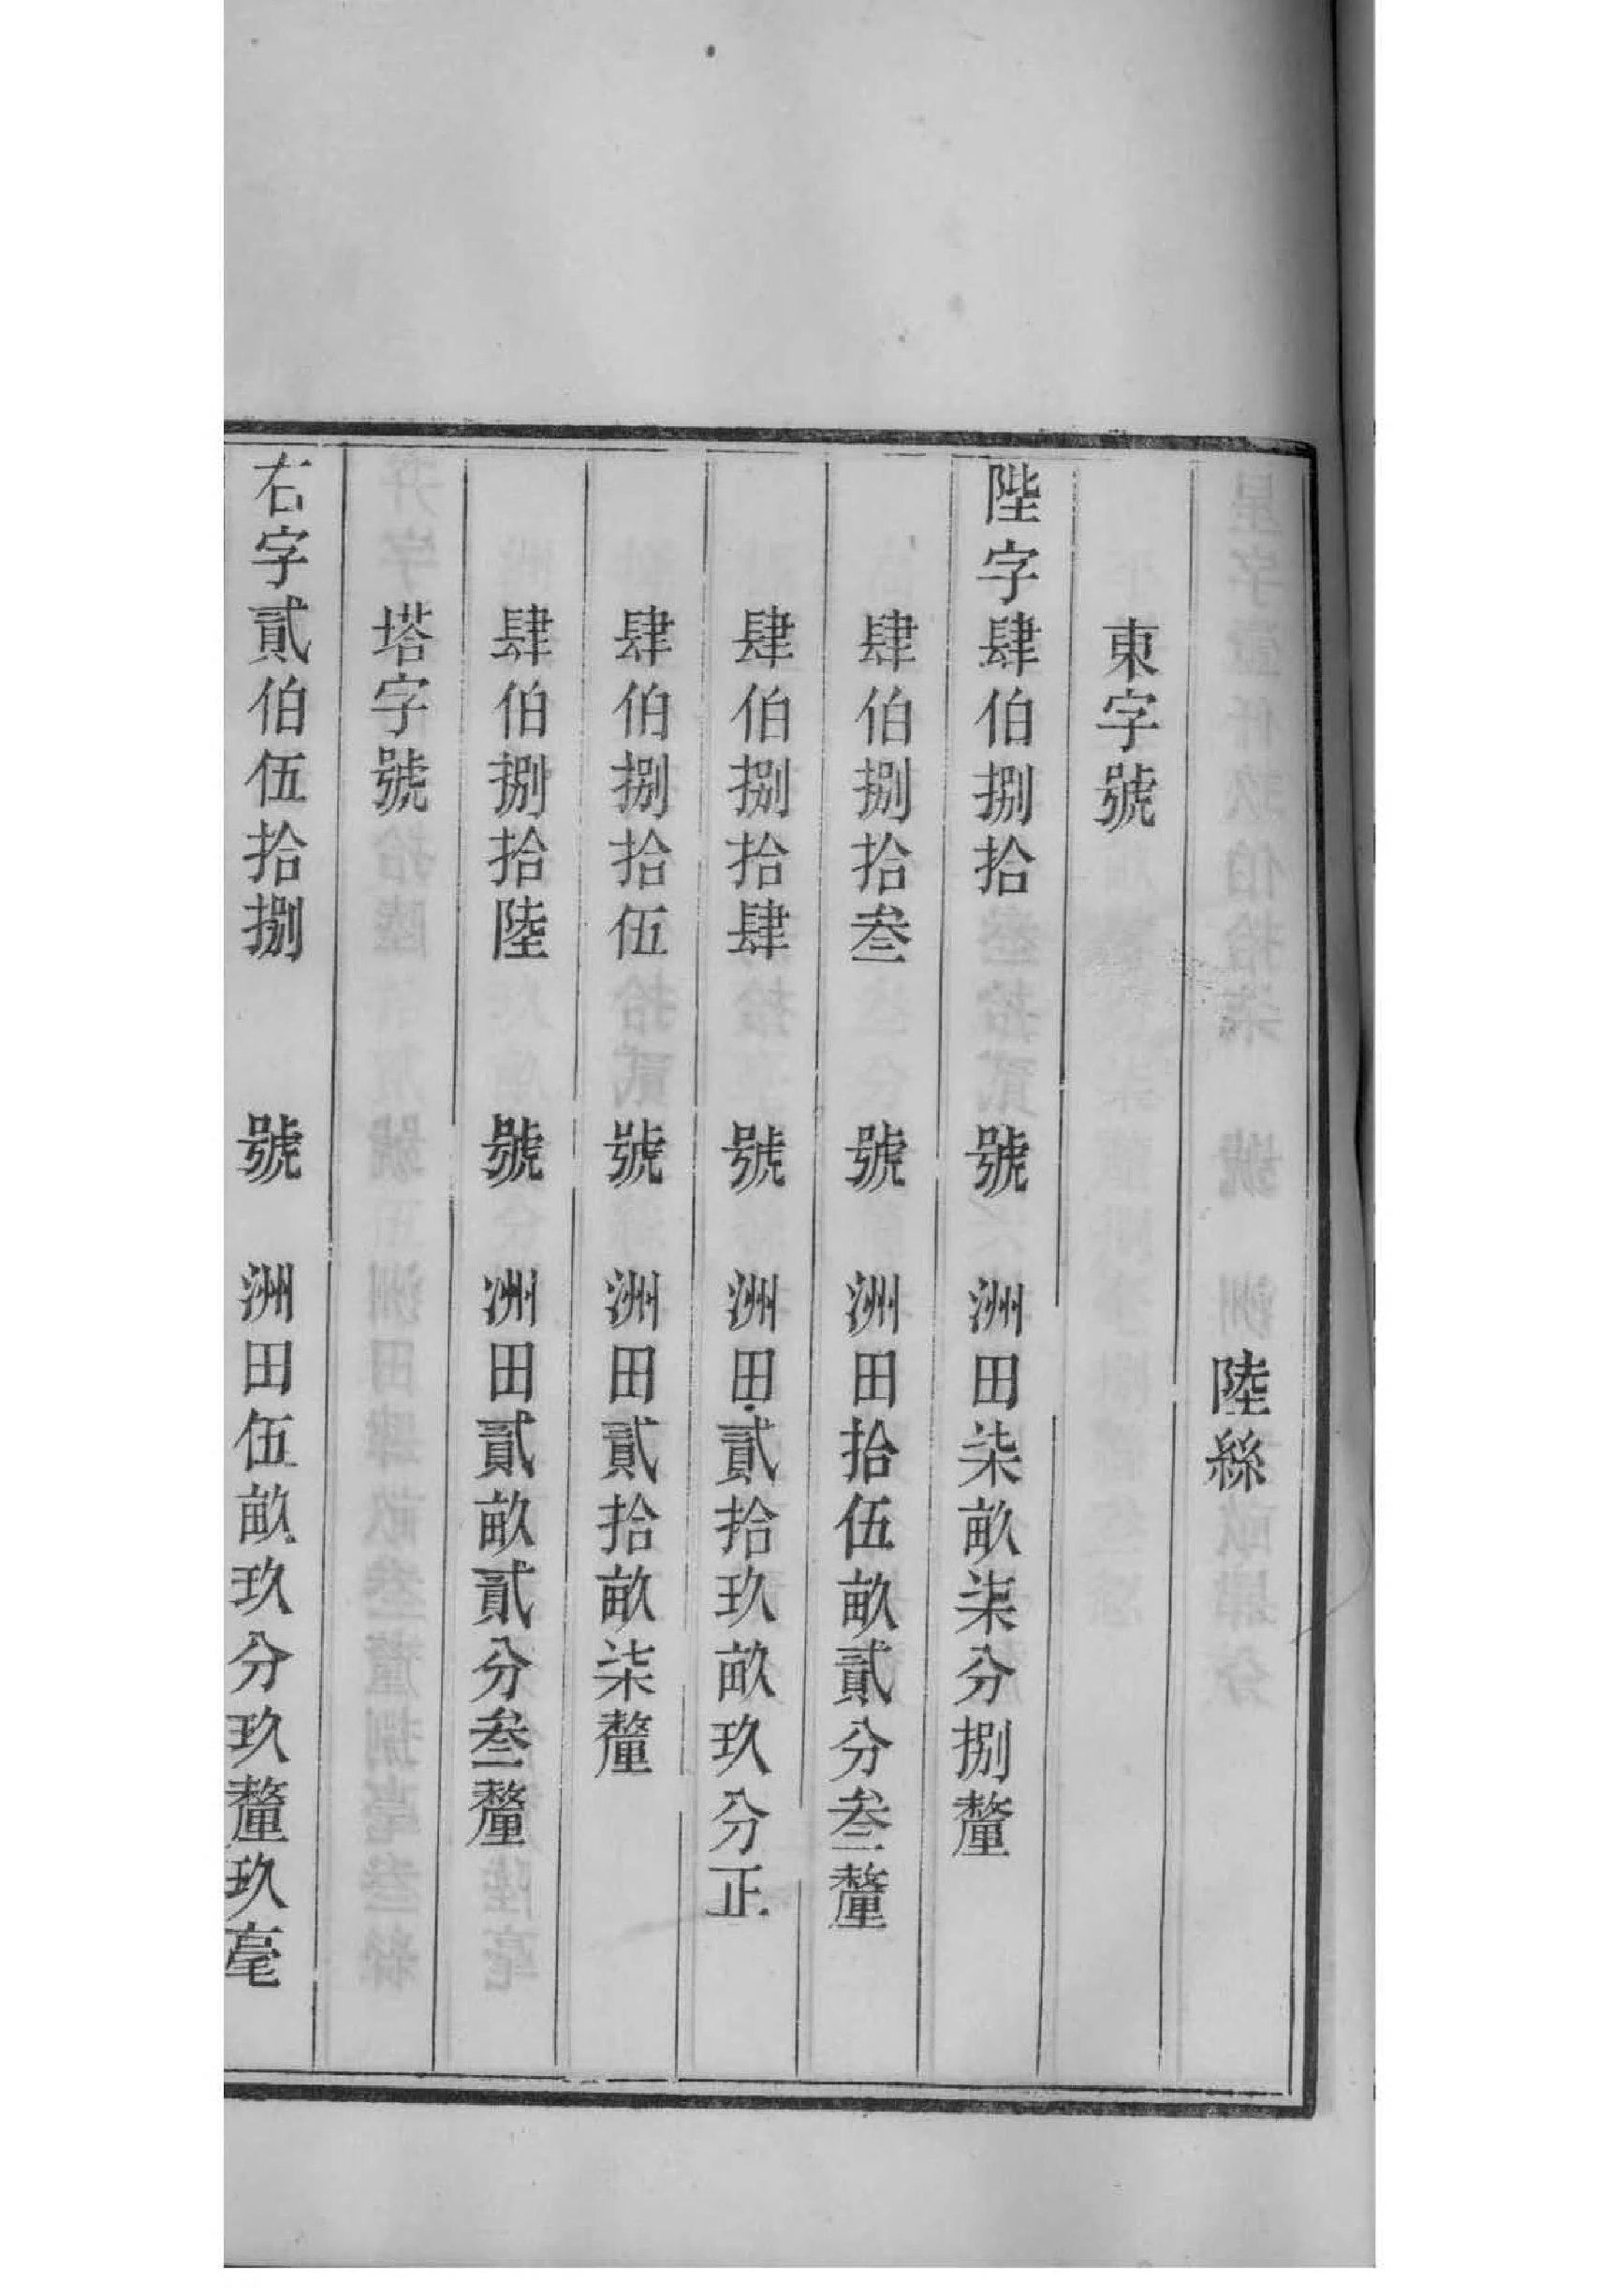 陸絲
東字號
陛字肆伯捌拾 號 洲田柒畝柒分捌釐
肆伯捌拾叁 號 洲田拾伍畝貳分叁釐
肆伯捌拾肆 號 洲田貳拾玖畝玖分正
肆伯捌拾伍 號 洲田貳拾畝柒釐
肆伯捌拾陸 號 洲田貳畝貳分叁釐
塔字號
右字貳伯伍拾捌 號 洲田伍畝玖分玖釐玖毫